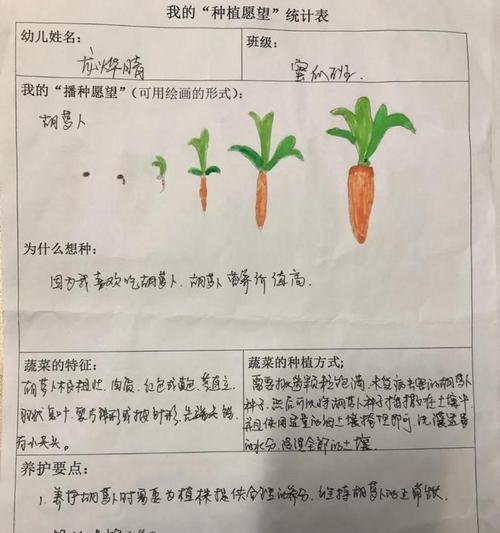 我的“种植愿望”统计表
幼儿姓名：
龙烨晴
班级：
蜜瓜班
我的“播种愿望”（可用绘画的形式）：
胡萝卜
为什么想种：
因为我喜欢吃胡萝卜、胡萝卜营养价值高.
蔬菜的特征：
胡萝卜根粗壮、肉质、红色或黄色、茎直立、
羽状复叶
有小尖头.
蔬菜的种植方式：
需要挑选颗粒饱满、未受病虫害的胡萝卜
种子，然后可以将胡萝卜种子播撒在土壤中
并且使用适量的细土壤掩埋即可，浇灌适量
的水分，浸湿全部的土壤
养护要点：
1. 养护胡萝卜时需要为植株提供合理的养分，维持胡萝卜的正常